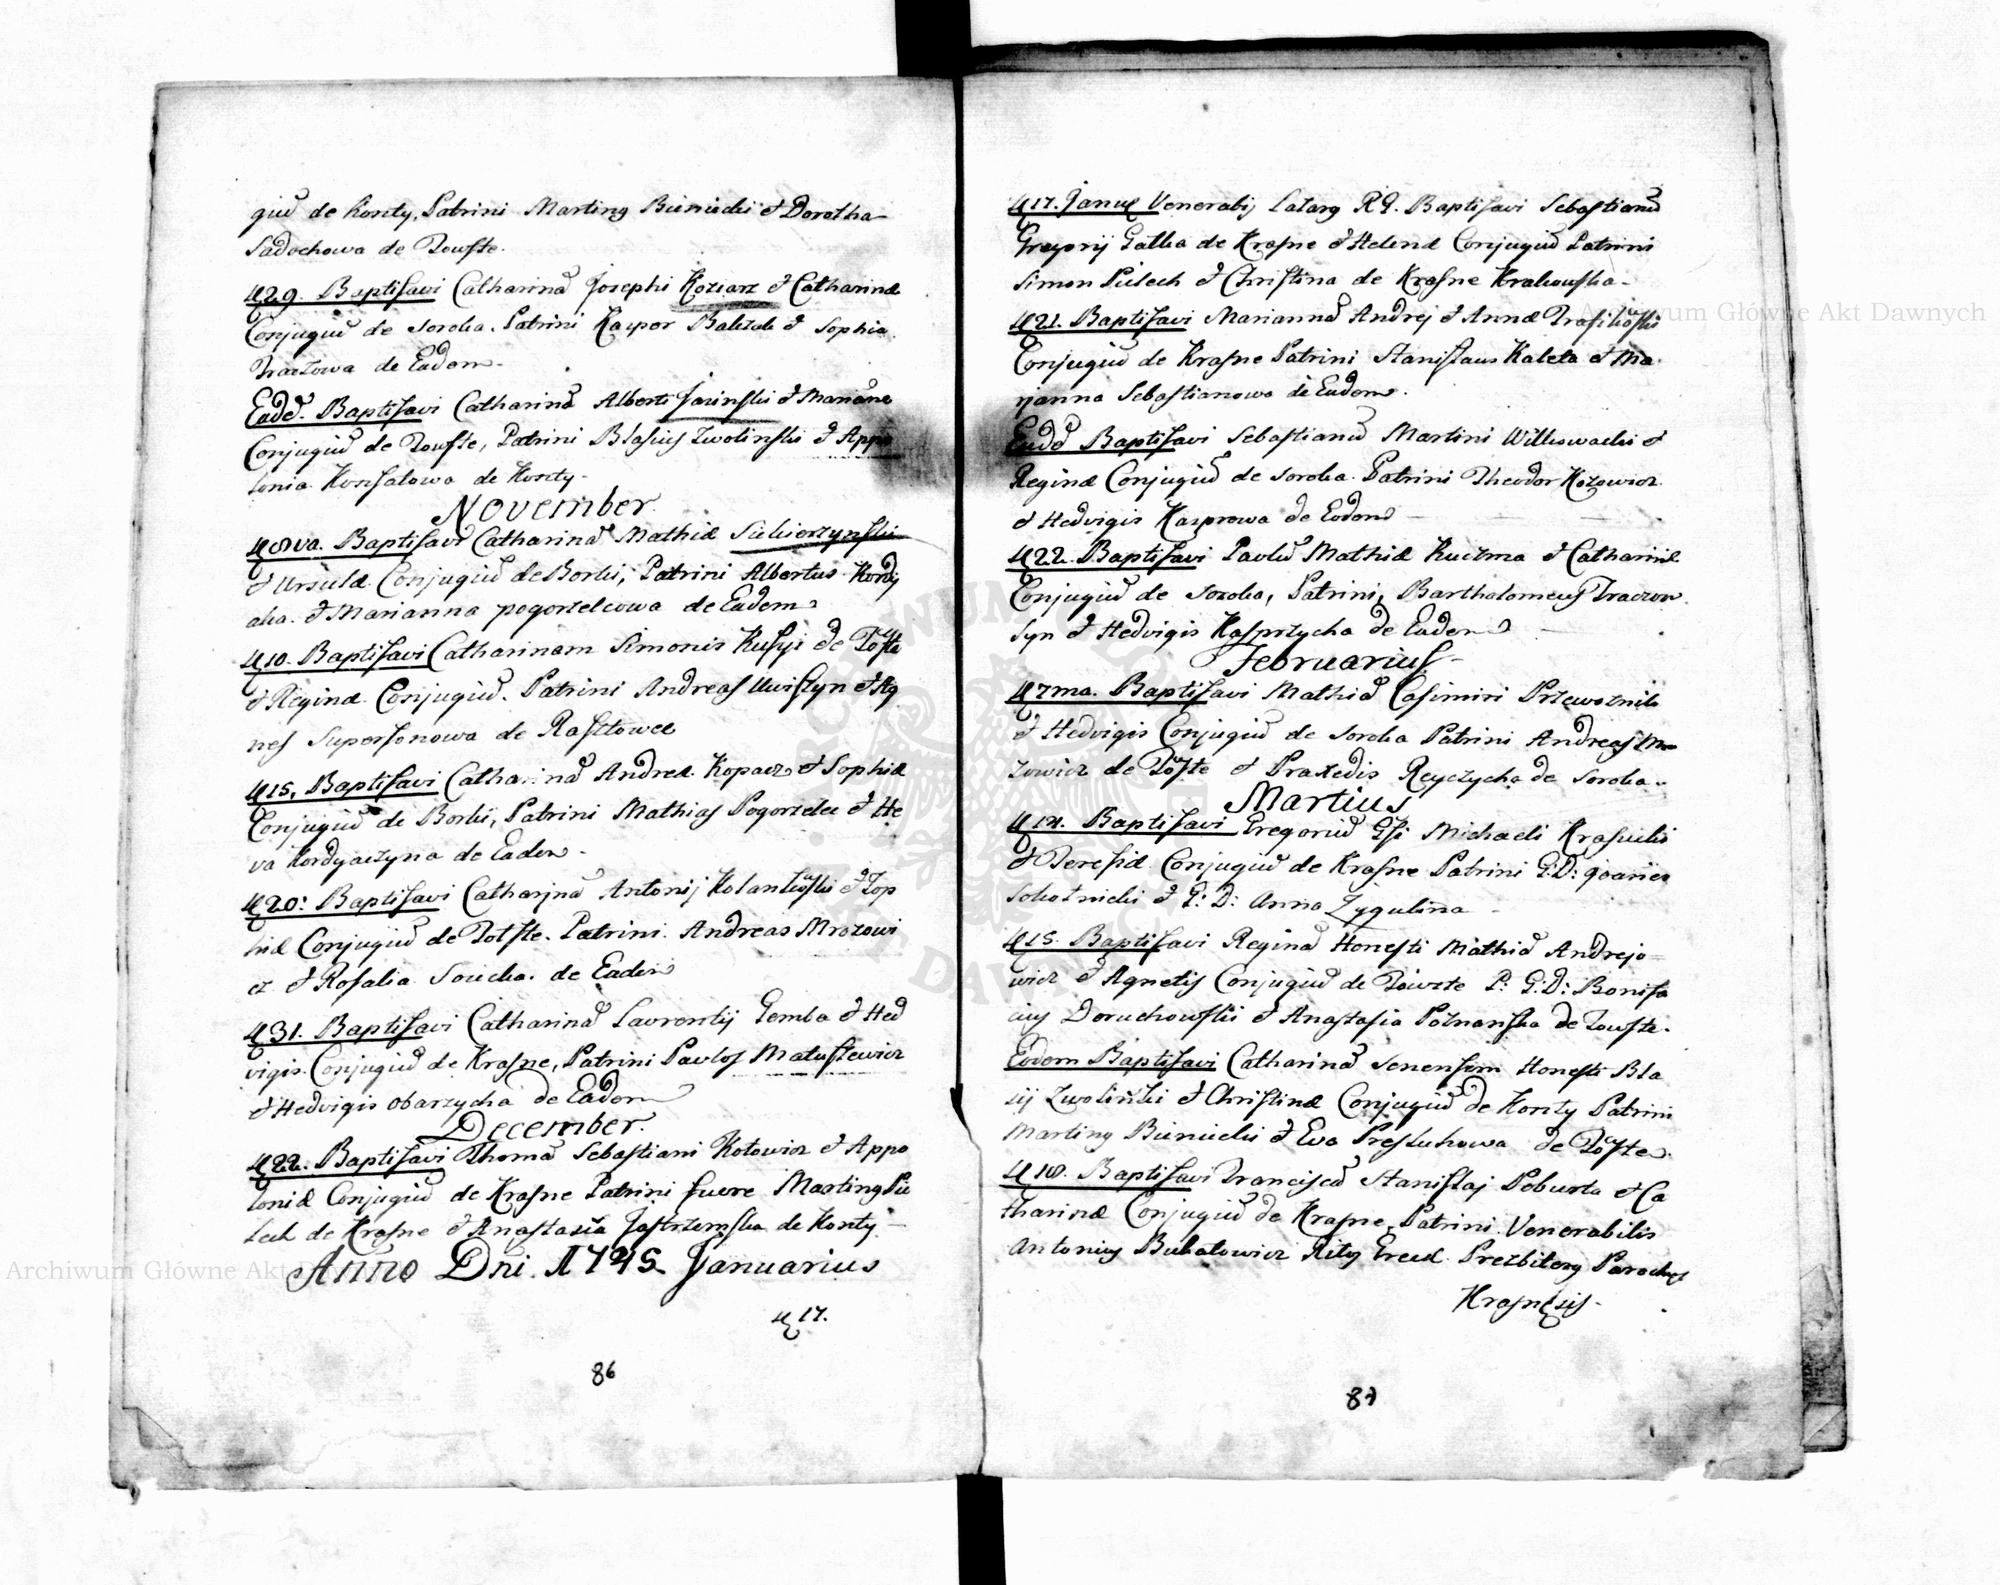 giũ de Konty, Patrini Martinꝰ Bieniecki et Dorotha
Sadochowa de Touste.
29. Baptisavi Catharinã Josephi Koziarz et Catharinæ
Conjugiũ de Soroka. Patrini Kacper et Sophia
Traczowa de Eadem.
Eadẽ. Baptisavi Catharinã Alberti et Mariãnæ
Conjugiũ de Touste, Patrini Blasiuʒ Zwolinski et Appo
lonia de Konty.
November.
8va. Baptisavi Catharinã Mathiæ Siekierzynski
et Ursulæ Conjugiũ de Borki, Patrini Albertus Kordy
aka. et Marianna pogorzelcowa de Eadem
10. Baptisavi Catharinam Simonis de Toste
et Reginæ Conjugiũ. Patrini Andreas et Ag
nes Supersonowa de Rasztowce
15. Baptisavi Catharinã Andreæ Kopacz et Sophiæ
Conjugiũ de Borki, Patrini Mathias Pogorzelec et He
va Kordyaczyna de Eadem
20: Baptisavi Catharjnã Antonij et Zop
hiæ Conjugiũ de Tolste. Patrini. Andreas Mrozowi
cz et Rosalia de Eadem
31. Baptisavi Catharinã Laurentij Gemba et Hed
vigis. Conjugiũ de Krasne, Patrini Pavlos Matusiewicz
et Hedvigis obarzycha de Eadem
December.
22. Baptisavi Thomã Sebastiani Kotowicz et Appo
loniæ Conjugiũ de Krasne Patrini fuere Martinꝰ Pie
lech de Krasne et Anastasia Jastrzemska de Konty
Anno Dni. 1745. Januarius
17.
86
17. Janua Venerabiʒ Lazarꝰ R G. Baptisavi Sebastianũ
Gregorij Galka de Krasne et Helenæ Conjugiũ Patrini
Simon Pielech et Christina de Krasne Krakowska
21. Baptisavi Mariannã Andrej et Annæ
Conjugiũ de Krasne Patrini Stanislaus Kaleta et Ma
rjanna Sebastianowa de Eadem.
Eadẽ Baptisavi Sebastianũ Martini et
Reginæ Conjugiũ de Soroka. Patrini Theodor
et Hedvigis Kasprowa de Eadem
22. Baptisavi Pavlũ Mathiæ Kuczma et Catharinæ
Conjugiũ de Soroka, Patrini, Bartholomeuʒ Traczow
syn et Hedvigis Kasprzycha de Eadem
Februarius
7ma. Baptisavi Mathiã Casimiri Przewoznik
et Hedvigis Conjugiũ de Soroka Patrini Andreas Mro
zowicz de Toste et Praxedis de Soroka.
Martius
14. Baptisavi Gregoriũ Gsi Michaeli Krasucki
et Teresiæ Conjugiũ de Krasne Patrini G: D: Joañes
Sokolnicki et G: D: Anna Zygulina
15. Baptisavi Reginã Honesti Mathiæ Andrejo
wicz et Agnetis Conjugiũ de Touste P: G: D: Bonifa
ciuʒ Doruchowski et Anastasia Poznanska de Touste.
Eodem Baptisavi Catharinã Senensem Honesti Bla
sij Zwolinski et Christinæ Conjugiũ de Konty Patrini
Martinꝰ Bieniecki et Eva de Toste.
18. Baptisavi Franciscũ Stanislaj Poburta et Ca
tharinæ Conjugiũ de Krasne, Patrini. Venerabilis
Antoniuʒ Bukatowicz Rituʒ Greci Prezbiterꝰ Parochuʒ
Krasnẽsis.
87
Archiwum Główne Akt Dawnych
Archiwum Główne Akt
ARCHIWUM GŁÓWNE AKT DAWNYCH